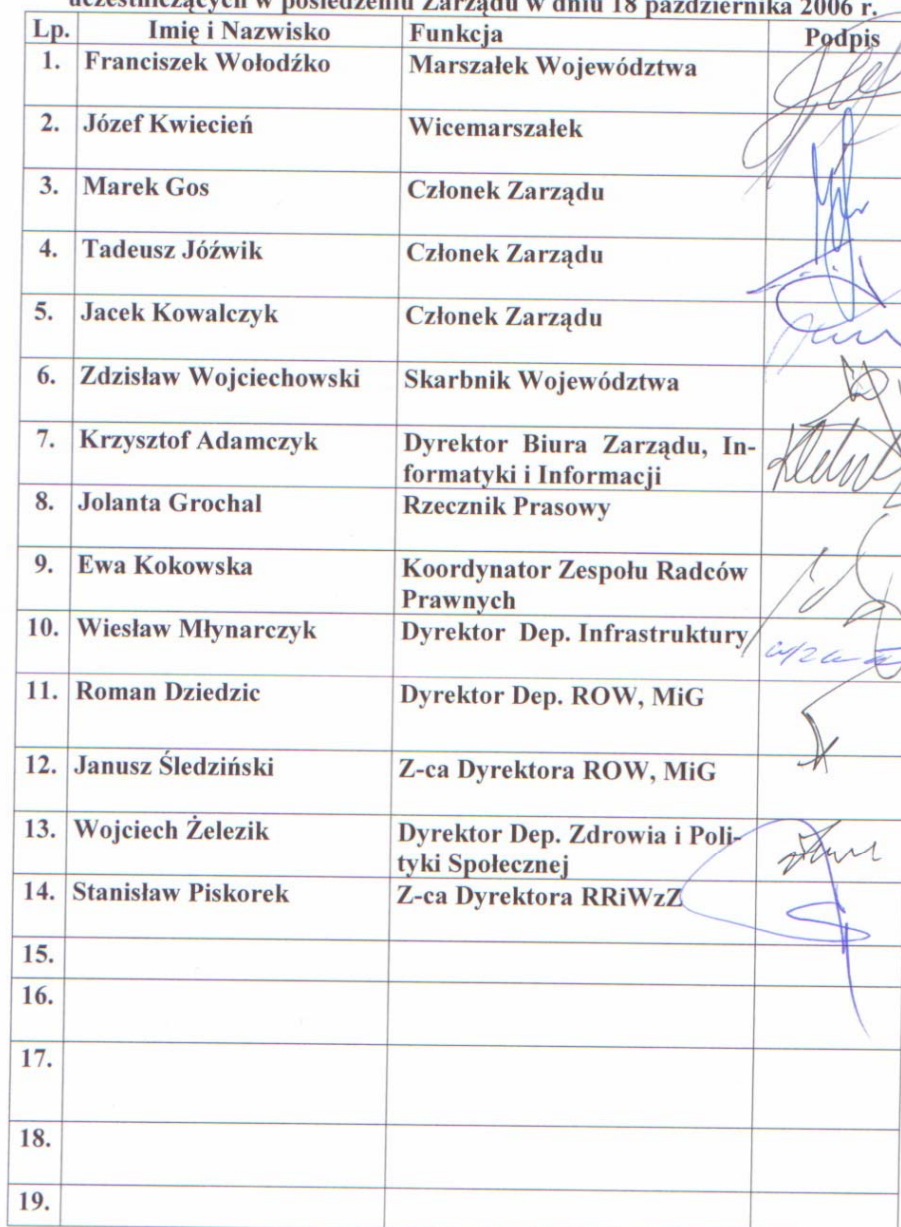 uczestniczących w posiedzeniu Zarządu w dniu 18 października 2006 r.
Lp. Imię i Nazwisko Funkcja Podpis
1. Franciszek Wołodźko Marszałek Województwa
2. Józef Kwiecień Wicemarszałek
3. Marek Gos Członek Zarządu
4. Tadeusz Jóźwik Członek Zarządu
5. Jacek Kowalczyk Członek Zarządu
6. Zdzisław Wojciechowski Skarbnik Województwa
7. Krzysztof Adamczyk Dyrektor Biura Zarządu, In-
formatyki i Informacji
8. Jolanta Grochal Rzecznik Prasowy
9. Ewa Kokowska Koordynator Zespołu Radców
Prawnych
10. Wiesław Młynarczyk Dyrektor Dep. Infrastruktury
11. Roman Dziedzic Dyrektor Dep. ROW, MiG
12. Janusz Śledziński Z-ca Dyrektora ROW, MiG
13. Wojciech Żelezik Dyrektor Dep. Zdrowia i Poli-
tyki Społecznej
14. Stanisław Piskorek Z-ca Dyrektora RRiWzZ
15.
16.
17.
18.
19.